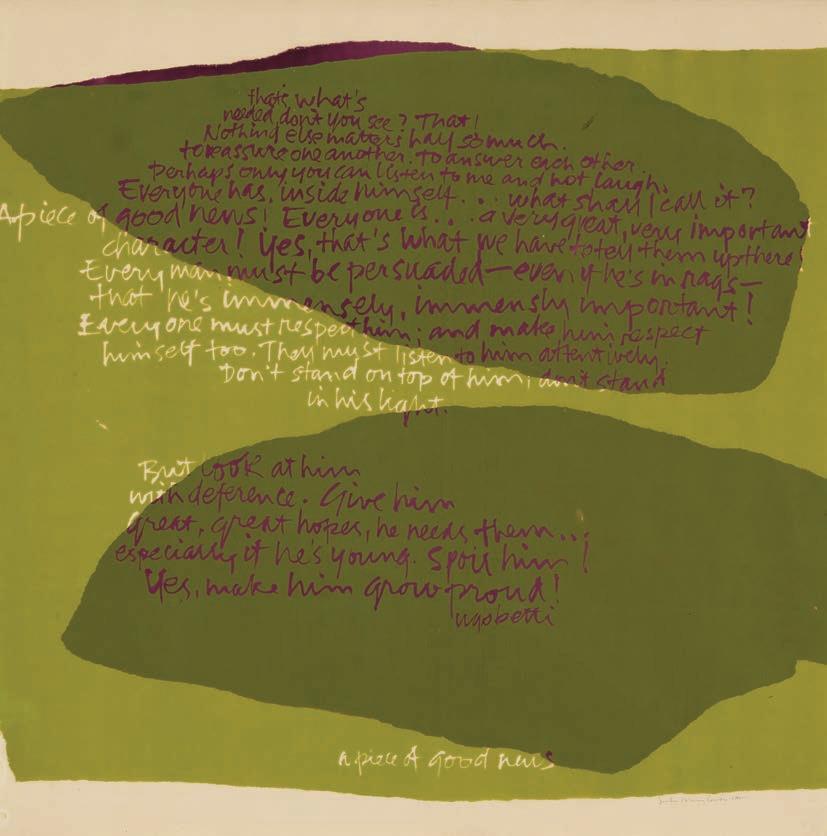 that's what's
needed don't you see? That!
Nothing else matters half so much.
to reassure one another. to answer each other.
Perhaps only you can listen to me and not laugh.
Everyone has, inside himself... what shall I call it?
A piece of good news! Everyone is... a very great, very important
character! Yes, that's what we have to tell them up there!
Every man must be persuaded—even if he's in rags—
that he's immensely, immensly important!
Everyone must respect him; and make him respect
himself too. They must listen to him attentively.
Don't stand on top of him, don't stand
in his light.
But look at him
with deference. Give him
great, great hopes, he needs them...
especially if he's young. Spoil him!
Yes, make him grow proud!
ugo betti
a piece of good news